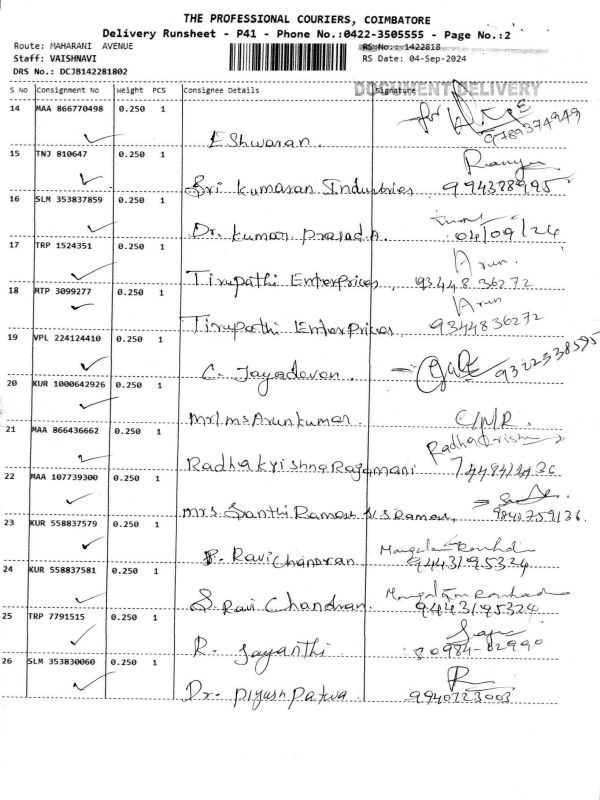 THE PROFESSIONAL COURIERS, COIMBATORE
Delivery Runsheet - P41 - Phone No.:0422-3505555 - Page No.:2
Route: MAHARANI AVENUE RS No.: 1422818
Staff: VAISHNAVI RS Date: 04-Sep-2024
DRS No.: DCJB142281802
DOCUMENT DELIVERY
S No Consignment No Weight PCS Consignee Details Signature
14 MAA 866770498 0.250 1
for
Eshwaran. 9789374949
15 TNJ 810647 0.250 1
Sri Kumaran Industries, 994378995
16 SLM 353837859 0.250 1
Dr. Kumar Prasad A. 04/09/24
17 TRP 1524351 0.250 1 Arun.
Tirupathi Enterprices, 93448 36272
18 MTP 3099277 0.250 1 Arun
Tirupathi Enterprices. 9344836272
19 VPL 224124410 0.250 1
C. Jayadevan. 9322338595
20 KUR 1000642926 0.250 1
mr/ms Arunkumar. C/N/R.
21 MAA 866436662 0.250 1
Radhakrishna Rajamani
22 MAA 107739300 0.250 1
mrs. Santhi Ramesh N.S Ramesh, 9840759136.
23 KUR 558837579 0.250 1
P. Ravi Chandran 9443195324
24 KUR 558837581 0.250 1
S. Ravi Chandran. 9443195324
25 TRP 7791515 0.250 1
R. Jayanthi 80984-02990
26 SLM 353830060 0.250 1
Dr. Piyush Patwa 9940723003